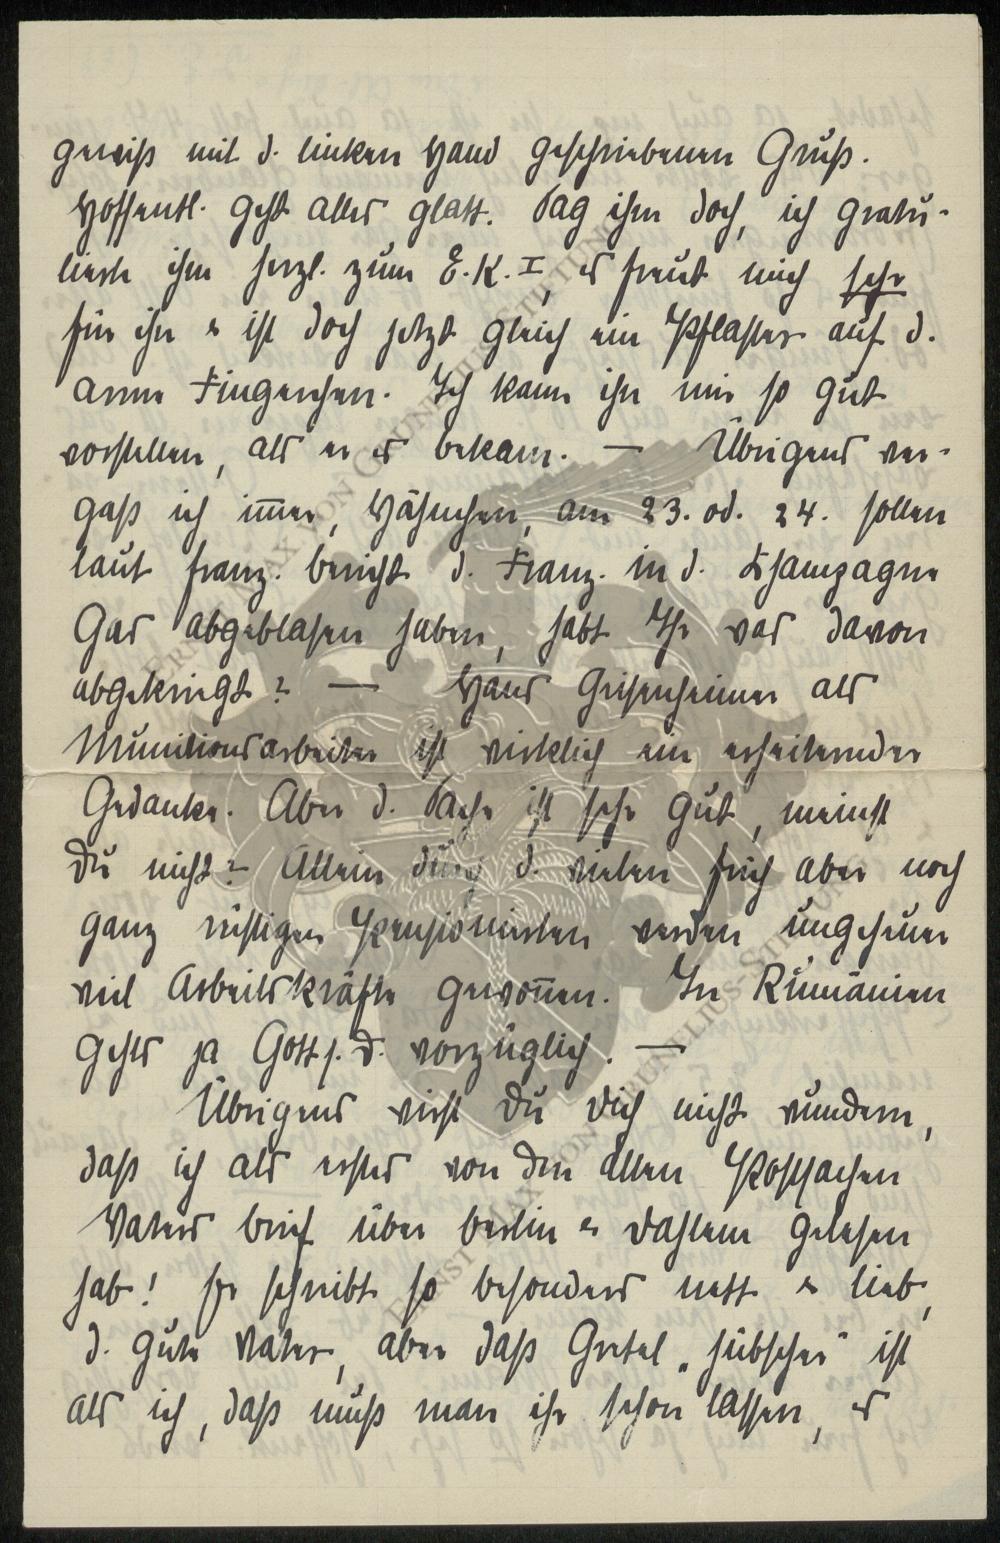 gewiß mit d. linken Hand geschriebenen Gruß.
Hoffentl. geht alles glatt. Sag ihm doch, ich gratu-
lierte ihm herzl. zum E.K. I, es freut mich sehr
für ihn & ist doch jetzt gleich ein Pflaster auf d.
arme Fingerchen. Ich kann ihn mir so gut
vorstellen, als er es bekam. — Übrigens ver-
gaß ich im̅er, Hähnchen, am 23. od. 24. sollen
laut franz. Bericht d. Franz. in d. Champagne
Gas abgeblasen haben, habt Ihr was davon
abgekriegt? — Hans Geisenheimer als
Munitionsarbeiter ist wirklich ein erheiternder
Gedanke. Aber d. Sache ist sehr gut, meinst
Du nicht? Allein durch d. vielen frisch aber noch
ganz rüstigen Pensionierten werden ungeheuer
viel Arbeitskräfte gewon̅en. In Rumänien
gehts ja Gott s. D. vorzüglich. —
Übrigens wirst Du Dich nicht wundern,
daß ich als erstes von den allen Postsachen
Vaters Brief über Berlin & Dahlem gelesen
hab! Er schreibt so besonders nett & lieb,
d. gute Vater, aber daß Gretel „hübscher" ist
als ich, daß muß man ihr schon lassen, es
ERNST MAX VON GRUNELIUS-STIFTUNG
ERNST MAX VON GRUNELIUS-STIFTUNG